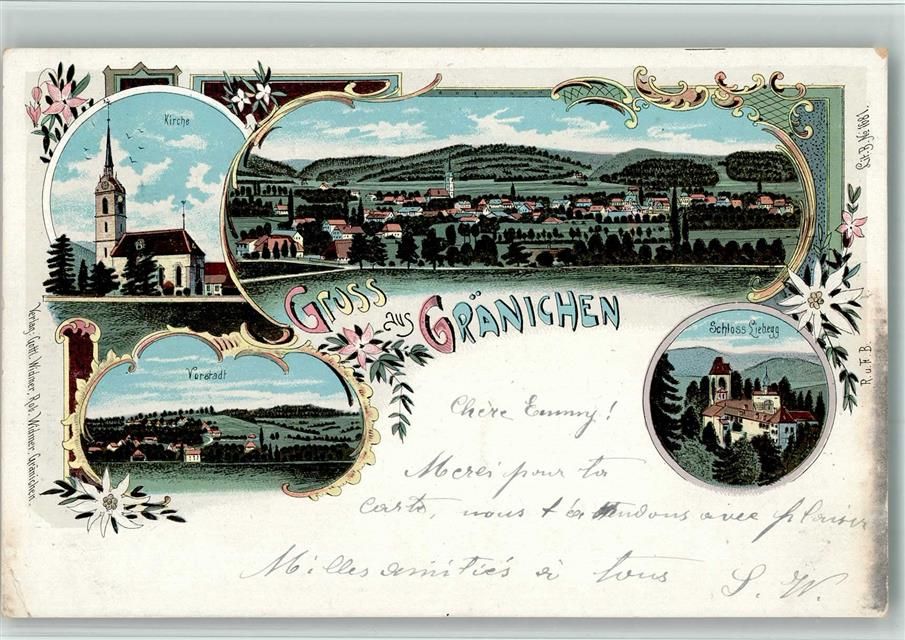 Kirche
Gruss aus Gränichen
Vorstadt
Schloss Liebegg
Verlag: Gottl. Widmer, Rob. Widmer, Gränichen.
R. u. F. B.
Chère Emmy!
Merci pour ta
carte, nous t'attendons avec plaisir
Milles amitiés à tous
S. W.